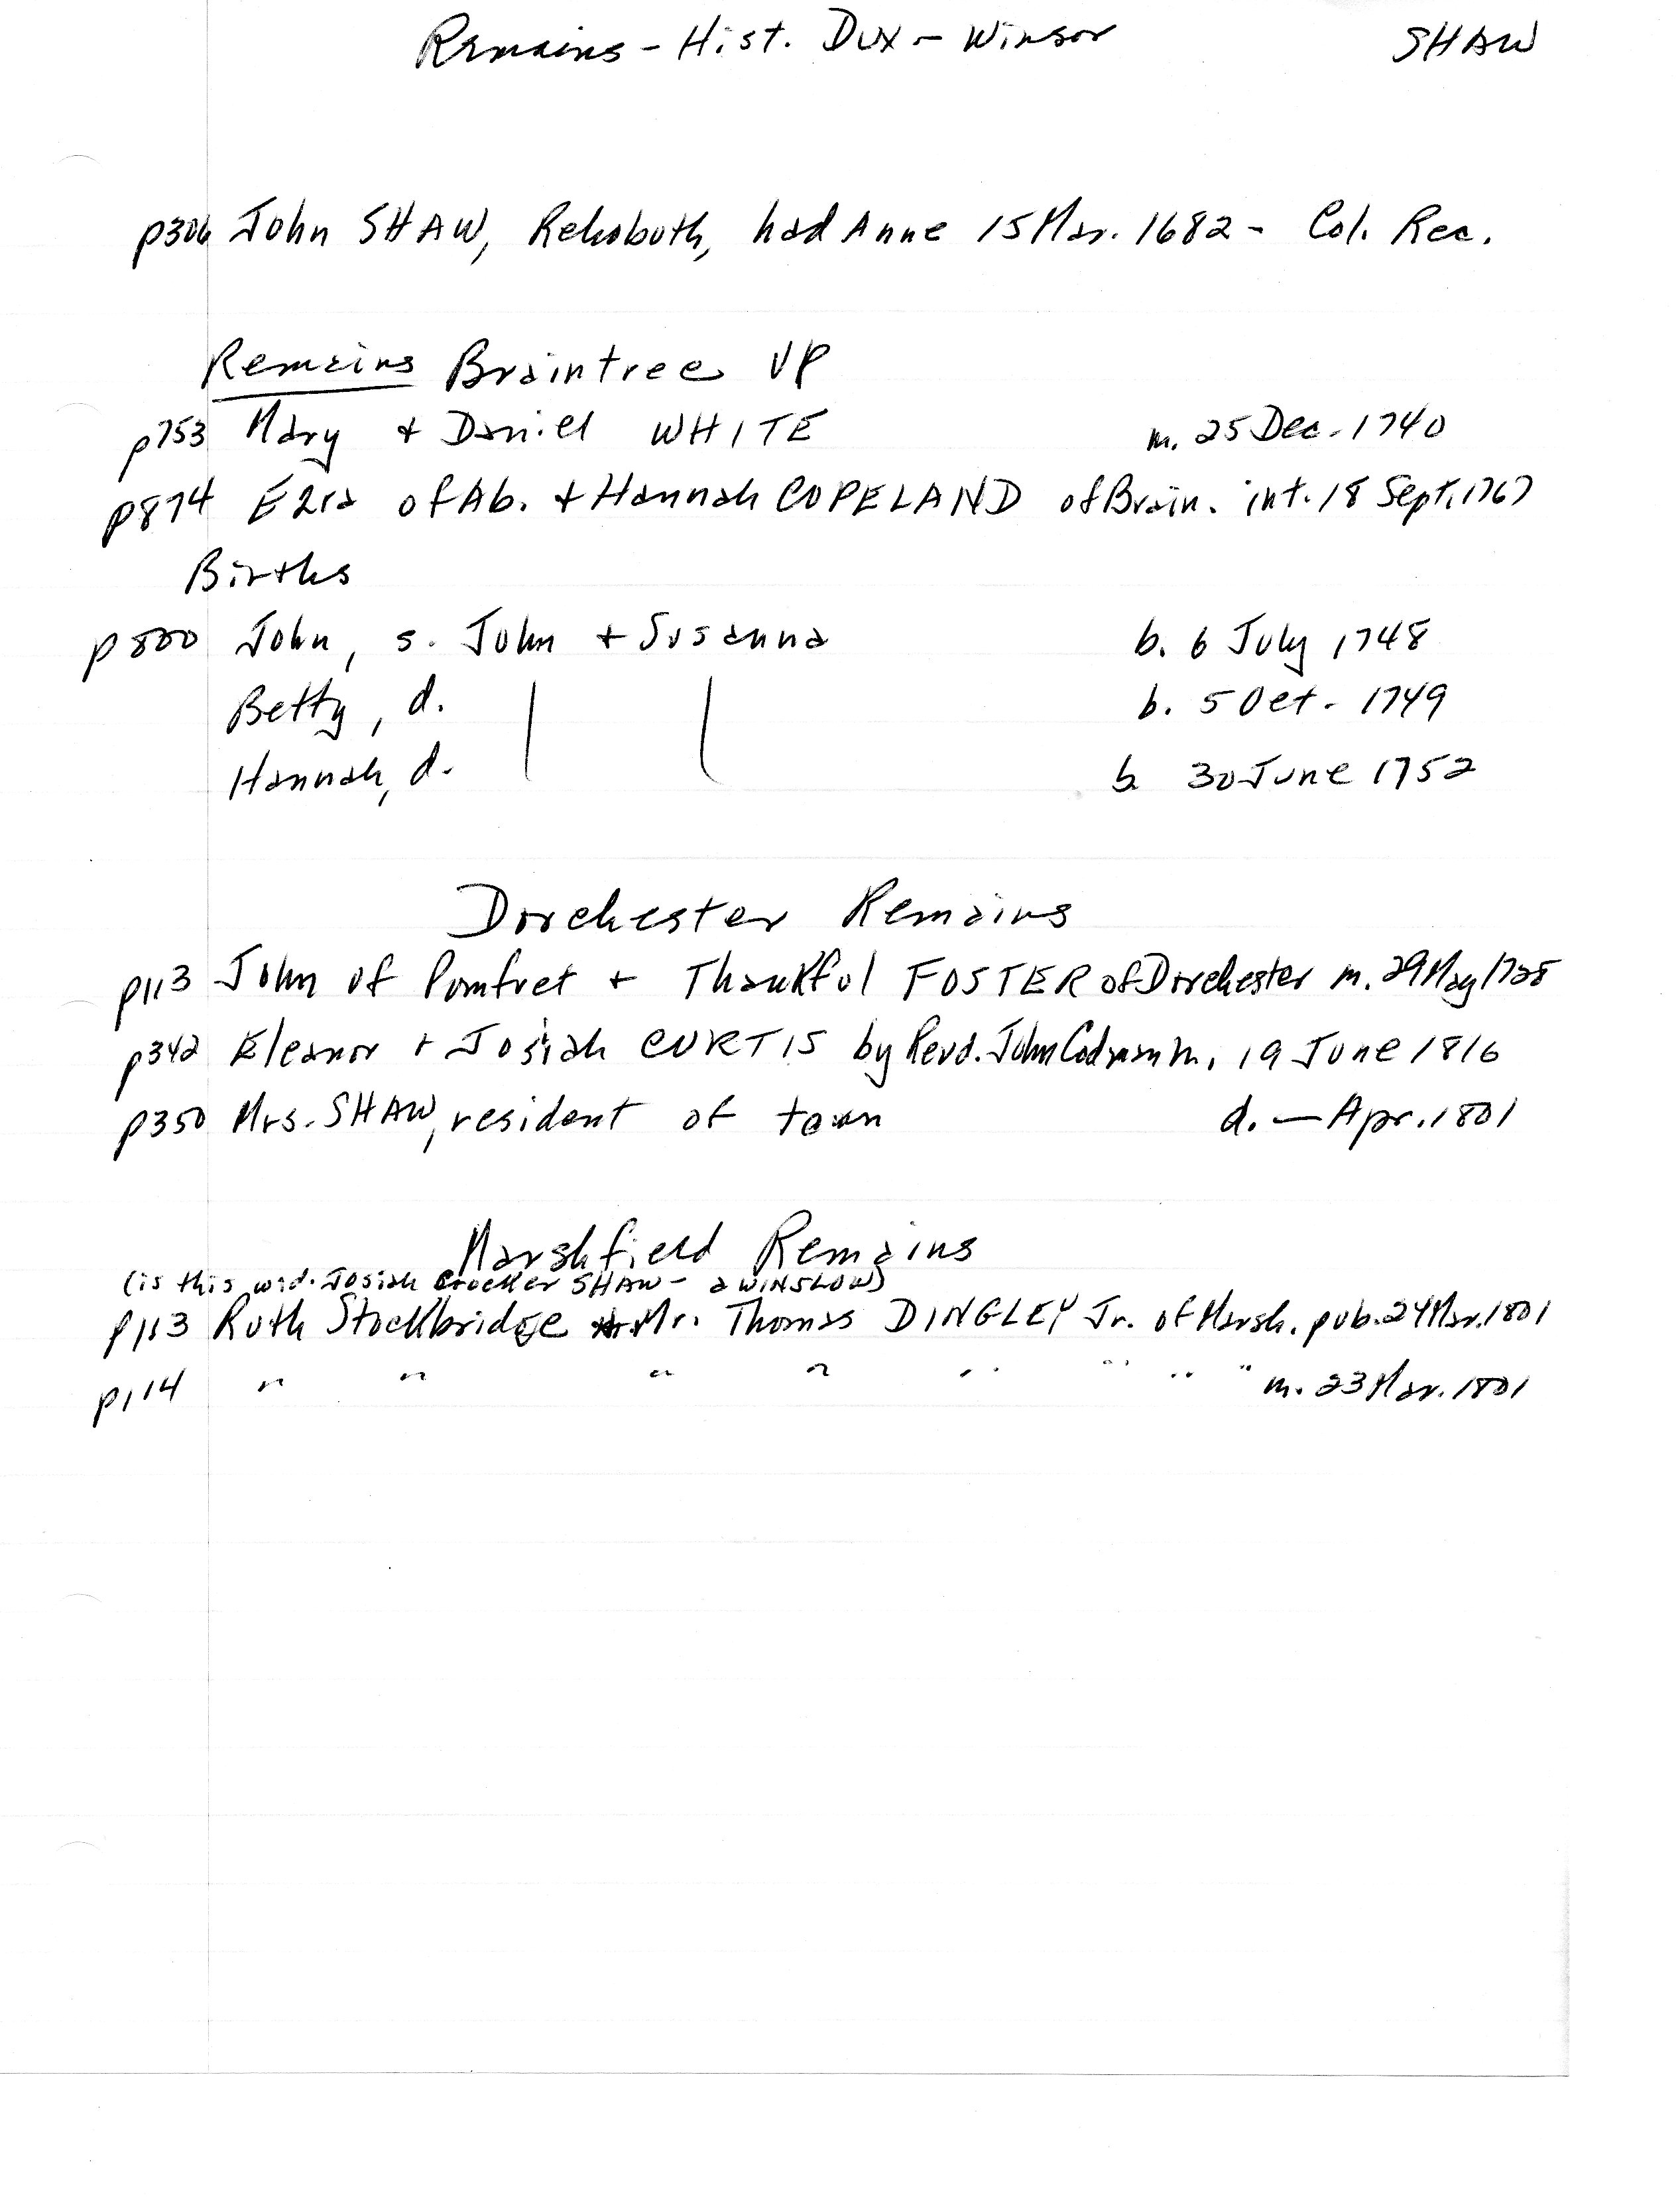 Remains - Hist. Dux - Winsor SHAW
p306 John SHAW, Rehoboth, had Anne 15 Mar. 1682 - Col. Rec.
Remains Braintree VR
p753 Mary + Daniel WHITE m. 25 Dec. 1740
p874 Ezra of Ab. + Hannah COPELAND of Brain. int. 18 Sept. 1767
Births
p800 John, s. John + Susanna b. 6 July 1748
Betty, d. b. 5 Oct. 1749
Hannah, d. b. 30 June 1752
Dorchester Remains
p113 John of Pomfret + Thankful FOSTER of Dorchester m. 29 May 1728
p342 Eleanor + Josiah CURTIS by Revd. John Codman m. 19 June 1816
p350 Mrs. SHAW, resident of town d. — Apr. 1801
Marshfield Remains
(is this wid. Josiah Crocker SHAW - a WINSLOW)
p113 Ruth Stockbridge Mr. Thomas DINGLEY Jr. of Marsh. pub. 24 Mar. 1801
p114 " " " " " " " " m. 23 Mar. 1801